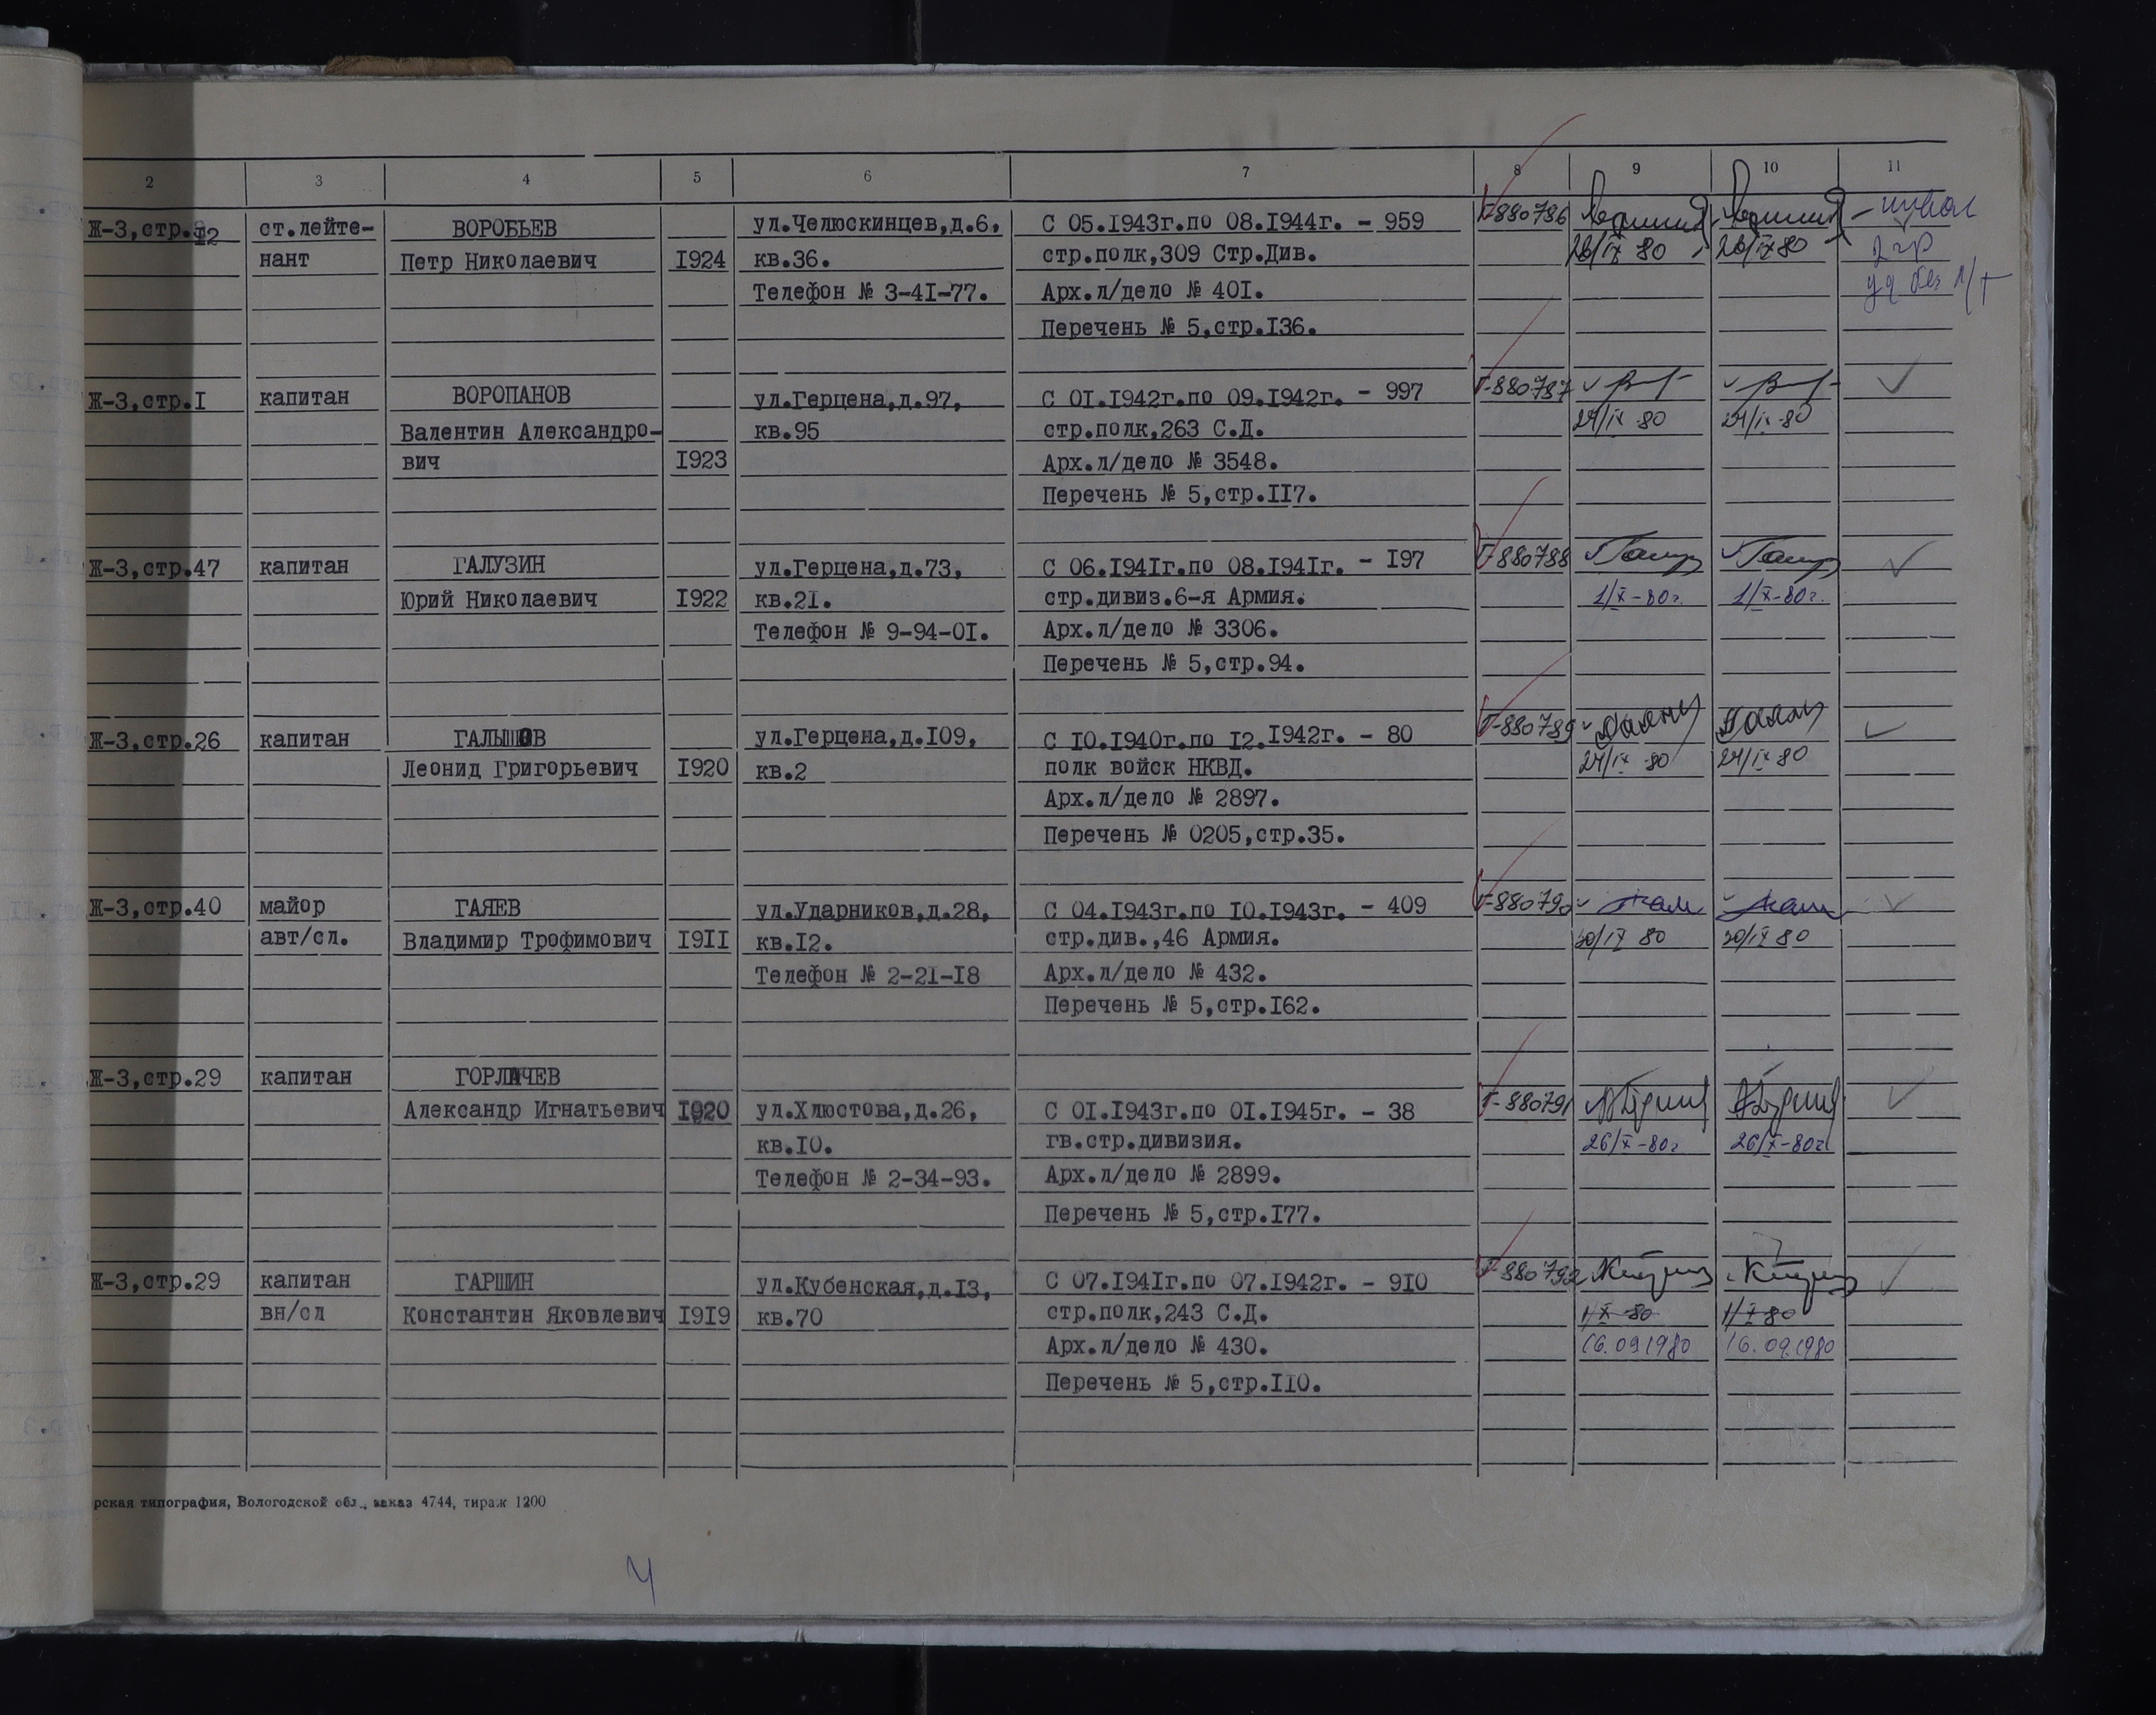 2 3 4 5 6 7 8 9 10 11
Ж-3,стр.12 ст.лейте- ВОРОБЬЕВ ул.Челюскинцев,д.6, С 05.1943г.по 08.1944г. - 959 Г-880786
нант Петр Николаевич 1924 кв.36. стр.полк,309 Стр.Див. 26/IX 80 26/IX 80 2 гр
Телефон № 3-41-77. Арх.л/дело № 401.
Перечень № 5,стр.136.
Ж-3,стр.1 капитан ВОРОПАНОВ ул.Герцена,д.97, С 01.1942г.по 09.1942г. - 997 Г-880787
Валентин Александро- кв.95 стр.полк,263 С.Д. 24/IX-80 24/IX-80
вич 1923 Арх.л/дело № 3548.
Перечень № 5,стр.117.
Ж-3,стр.47 капитан ГАЛУЗИН ул.Герцена,д.73, С 06.1941г.по 08.1941г. - 197 Г-880788
Юрий Николаевич 1922 кв.21. стр.дивиз.6-я Армия. 1/X-80г. 1/X-80г.
Телефон № 9-94-01. Арх.л/дело № 3306.
Перечень № 5,стр.94.
Ж-3,стр.26 капитан ГАЛЫШОВ ул.Герцена,д.109, С 10.1940г.по 12.1942г. - 80 Г-880789
Леонид Григорьевич 1920 кв.2 полк войск НКВД. 24/IX 80 24/IX 80
Арх.л/дело № 2897.
Перечень № 0205,стр.35.
Ж-3,стр.40 майор ГАЯЕВ ул.Ударников,д.28, С 04.1943г.по 10.1943г. - 409 Г-880790
авт/сл. Владимир Трофимович 1911 кв.12. стр.див.,46 Армия. 30/IX 80 30/IX 80
Телефон № 2-21-18 Арх.л/дело № 432.
Перечень № 5,стр.162.
Ж-3,стр.29 капитан ГОРЛАЧЕВ
Александр Игнатьевич 1920 ул.Хлюстова,д.26, С 01.1943г.по 01.1945г. - 38 Г-880791
кв.10. гв.стр.дивизия. 26/X-80г 26/X-80г
Телефон № 2-34-93. Арх.л/дело № 2899.
Перечень № 5,стр.177.
Ж-3,стр.29 капитан ГАРШИН ул.Кубенская,д.13, С 07.1941г.по 07.1942г. - 910 Г-880792
вн/сл Константин Яковлевич 1919 кв.70 стр.полк,243 С.Д. 1/X-80 1/X-80
Арх.л/дело № 430. 16.09.1980 16.09.1980
Перечень № 5,стр.110.
рская типография, Вологодской обл., заказ 4744, тираж 1200
4